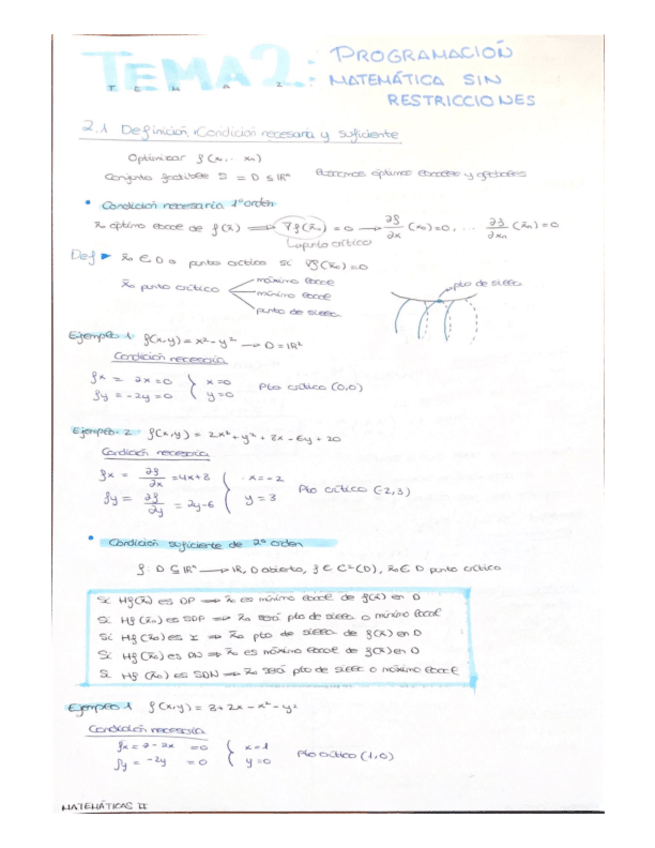 TEMA 2.: PROGRAMACIÓN
T E M A 2 MATEMÁTICA SIN
RESTRICCIONES
2.1 Definición, Condición necesaria y suficiente
Optimizar f(x₁... xₙ)
Conjunto factible S = D ⊆ ℝⁿ Buscamos óptimos locales y globales
• Condición necesaria 1º orden
x̄₀ óptimo local de f(x̄) ⟹ ∇f(x̄₀) = 0 → ∂f/∂x (x₀)=0, ... ∂f/∂xₙ (x̄₀)=0
↳ punto crítico
Def ▶ x̄₀ ∈ D a punto crítico si ∇f(x̄₀)=0
máximo local
x̄₀ punto crítico mínimo local
punto de silla
pto de silla
Ejemplo 1. f(x,y) = x² - y² → D = ℝ²
Condición necesaria
fx = 2x = 0 } { x=0
fy = -2y = 0 } { y=0 Pto crítico (0,0)
Ejemplo. 2 f(x,y) = 2x² + y² + 8x - 6y + 20
Condición necesaria
fx = ∂f/∂x = 4x+8 { x = -2
fy = ∂f/∂y = 2y-6 { y = 3 Pto crítico (-2,3)
• Condición suficiente de 2º orden
f: D ⊆ ℝⁿ → ℝ, D abierto, f ∈ C²(D), x̄₀ ∈ D punto crítico
Si Hf(x̄₀) es DP ⟹ x̄₀ es mínimo local de f(x) en D
Si Hf(x̄₀) es SDP ⟹ x̄₀ será pto de silla o mínimo local
Si Hf(x̄₀) es I ⟹ x̄₀ pto de silla de f(x) en D
Si Hf(x̄₀) es DN ⟹ x̄₀ es máximo local de f(x) en D
Si Hf(x̄₀) es SDN ⟹ x̄₀ será pto de silla o máximo local
Ejemplo 1 f(x,y) = 3 + 2x - x² - y²
Condición necesaria
fx = 2 - 2x = 0 { x=1
fy = -2y = 0 { y=0 Pto crítico (1,0)
MATEMÁTICAS II